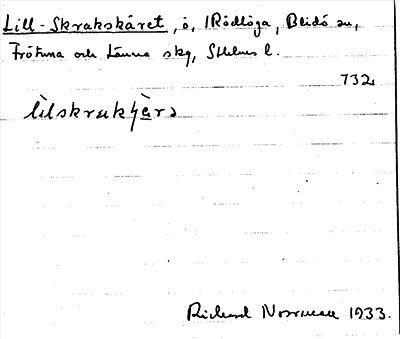 Lill-Skrakskäret, ö, i Rödlöga, Blidö sn,
Frötuna och Länna skg, Sthlms l.
732
Rickard Norrman 1933.